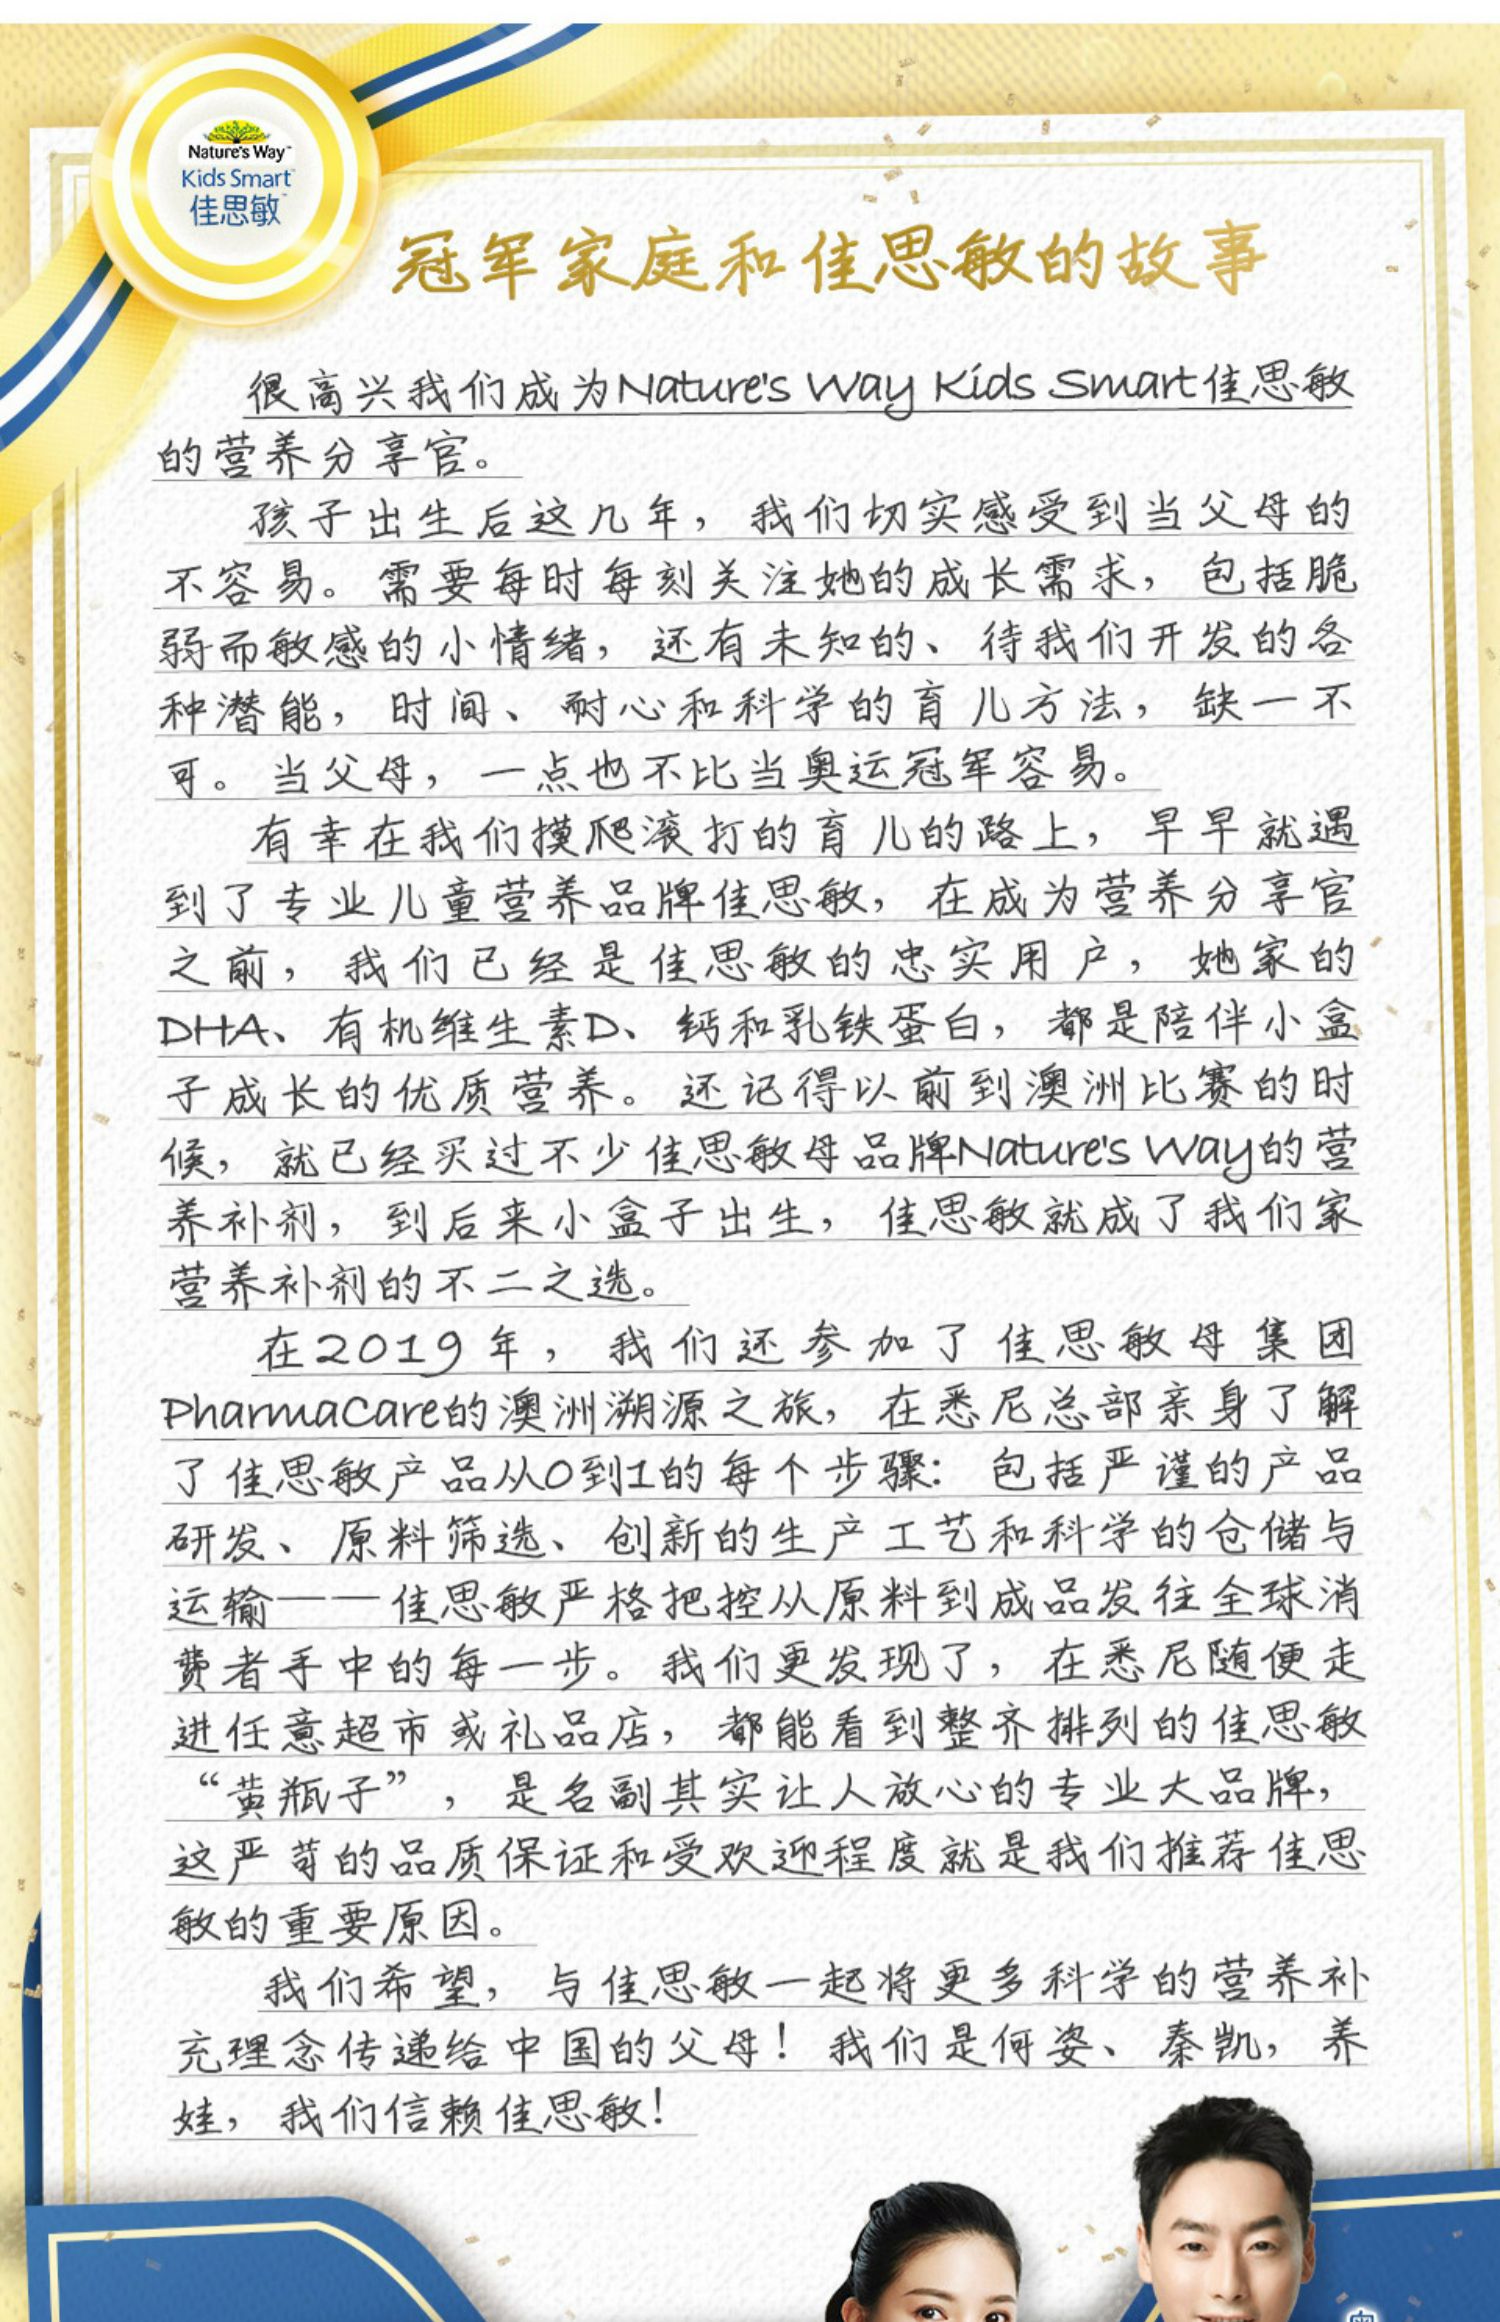 Nature's Way
Kids Smart
佳思敏
冠军家庭和佳思敏的故事
很高兴我们成为Nature's Way Kids Smart佳思敏
的营养分享官。
孩子出生后这几年，我们切实感受到当父母的
不容易。需要每时每刻关注她的成长需求，包括脆
弱而敏感的小情绪，还有未知的、待我们开发的各
种潜能，时间、耐心和科学的育儿方法，缺一不
可。当父母，一点也不比当奥运冠军容易。
有幸在我们摸爬滚打的育儿的路上，早早就遇
到了专业儿童营养品牌佳思敏，在成为营养分享官
之前，我们已经是佳思敏的忠实用户，她家的
DHA、有机维生素D、钙和乳铁蛋白，都是陪伴小盒
子成长的优质营养。还记得以前到澳洲比赛的时
候，就已经买过不少佳思敏母品牌Nature's Way的营
养补剂，到后来小盒子出生，佳思敏就成了我们家
营养补剂的不二之选。
在2019年，我们还参加了佳思敏母集团
PharmaCare的澳洲溯源之旅，在悉尼总部亲身了解
了佳思敏产品从0到1的每个步骤：包括严谨的产品
研发、原料筛选、创新的生产工艺和科学的仓储与
运输——佳思敏严格把控从原料到成品发往全球消
费者手中的每一步。我们更发现了，在悉尼随便走
进任意超市或礼品店，都能看到整齐排列的佳思敏
“黄瓶子”，是名副其实让人放心的专业大品牌，
这严苛的品质保证和受欢迎程度就是我们推荐佳思
敏的重要原因。
我们希望，与佳思敏一起将更多科学的营养补
充理念传递给中国的父母！我们是何姿、秦凯，养
娃，我们信赖佳思敏！